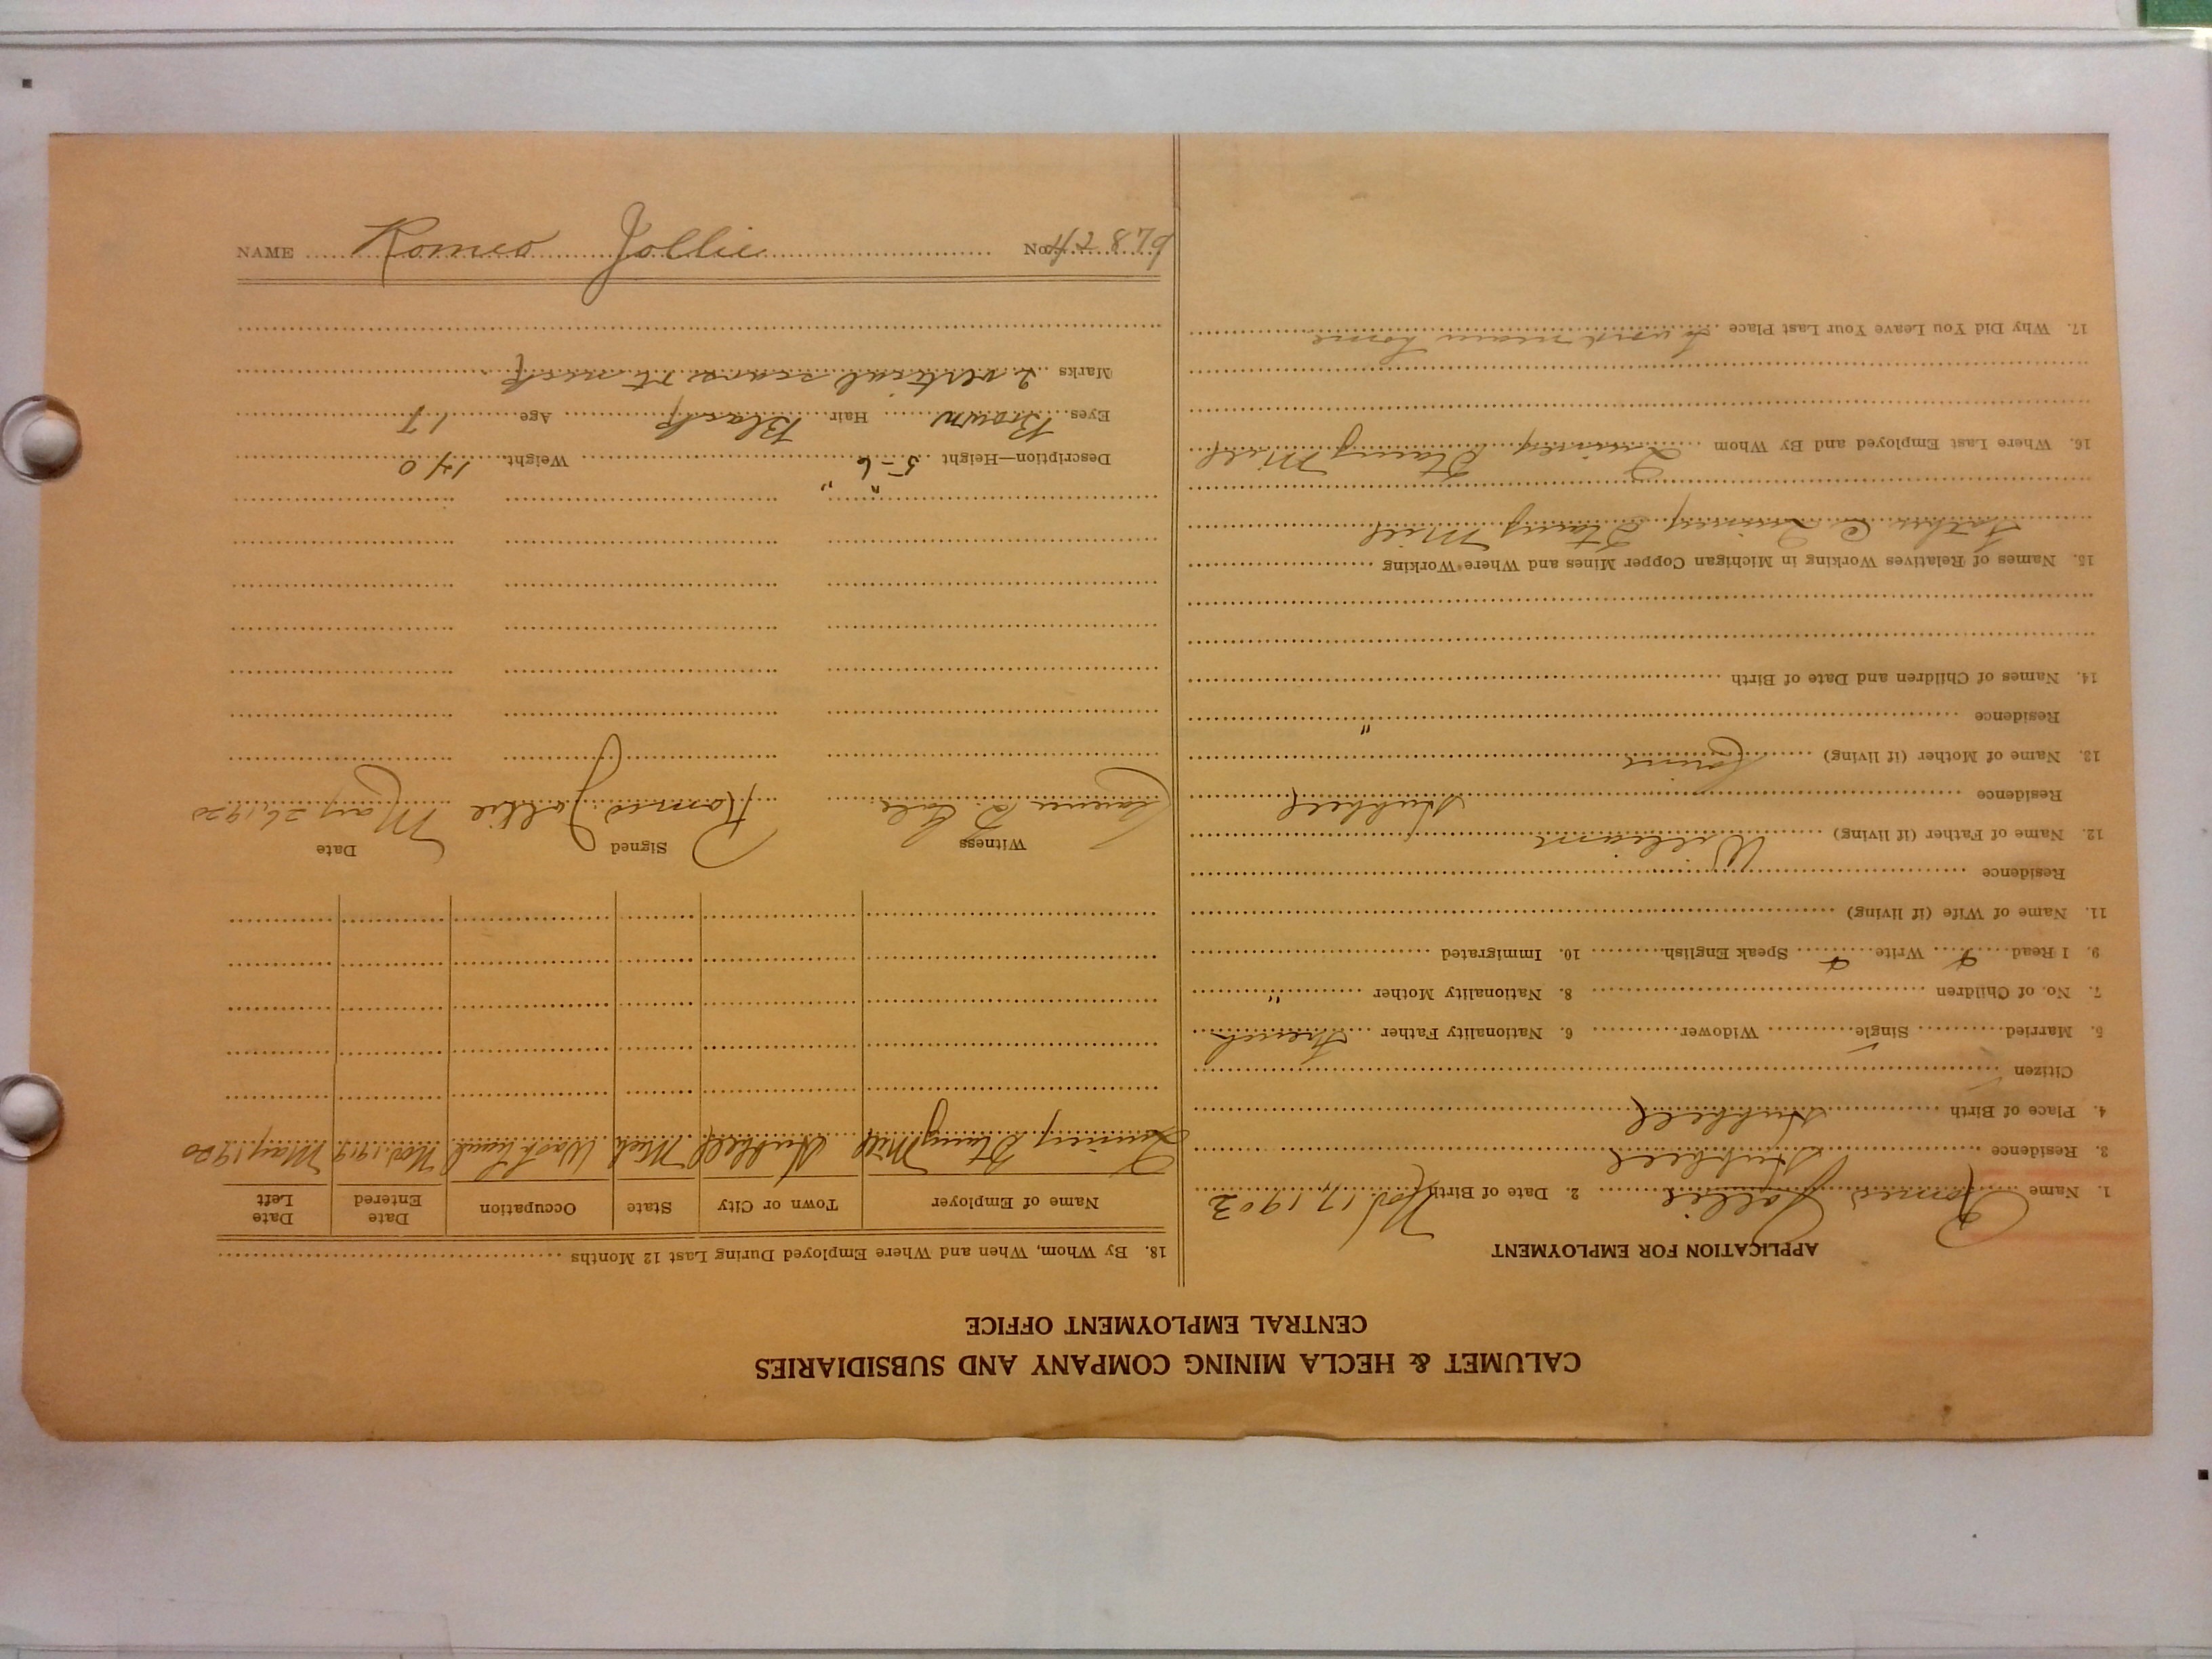 CALUMET & HECLA MINING COMPANY AND SUBSIDIARIES
CENTRAL EMPLOYMENT OFFICE
APPLICATION FOR EMPLOYMENT
1. Name Romeo Jollie 2. Date of Birth Nov. 17, 1902
3. Residence Hubbell
4. Place of Birth Hubbell
Citizen
5. Married Single ✓ Widower 6. Nationality Father French
7. No. of Children 8. Nationality Mother "
9. I Read Write Speak English 10. Immigrated
11. Name of Wife (if living)
Residence
12. Name of Father (if living) William
Residence Hubbell
13. Name of Mother (if living)
Residence "
14. Names of Children and Date of Birth
15. Names of Relatives Working in Michigan Copper Mines and Where Working
Father @ Quincy Stamp Mill
16. Where Last Employed and By Whom Quincy Stamp Mill
17. Why Did You Leave Your Last Place to work near home
18. By Whom, When and Where Employed During Last 12 Months
Name of Employer Town or City State Occupation Date Entered Date Left
Quincy Stamp Mill Hubbell Mich Wash hand Nov. 1919 May 1920
Witness Signed Date
Clarence B. Romeo Jollie May 26, 1920
Description—Height 5'-6" Weight 140
Eyes Brown Hair Black Age 17
Marks 2 vertical scars rt neck
NAME Romeo Jollie No. 42879